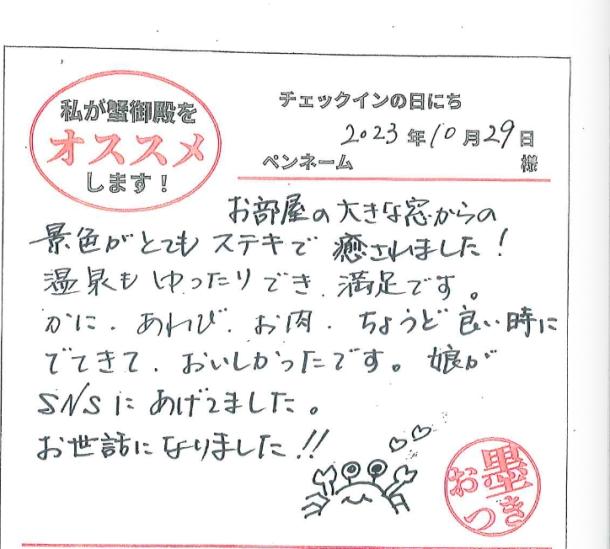 私が蟹御殿を
オススメ
します！
チェックインの日にち
2023年10月29日
ペンネーム 様
お部屋の大きな窓からの
景色がとてもステキで癒されました！
温泉もゆったりでき、満足です。
かに、あわび、お肉、ちょうど良い時に
でてきて、おいしかったです。娘が
SNSにあげてました。
お世話になりました!!
お墨
つき